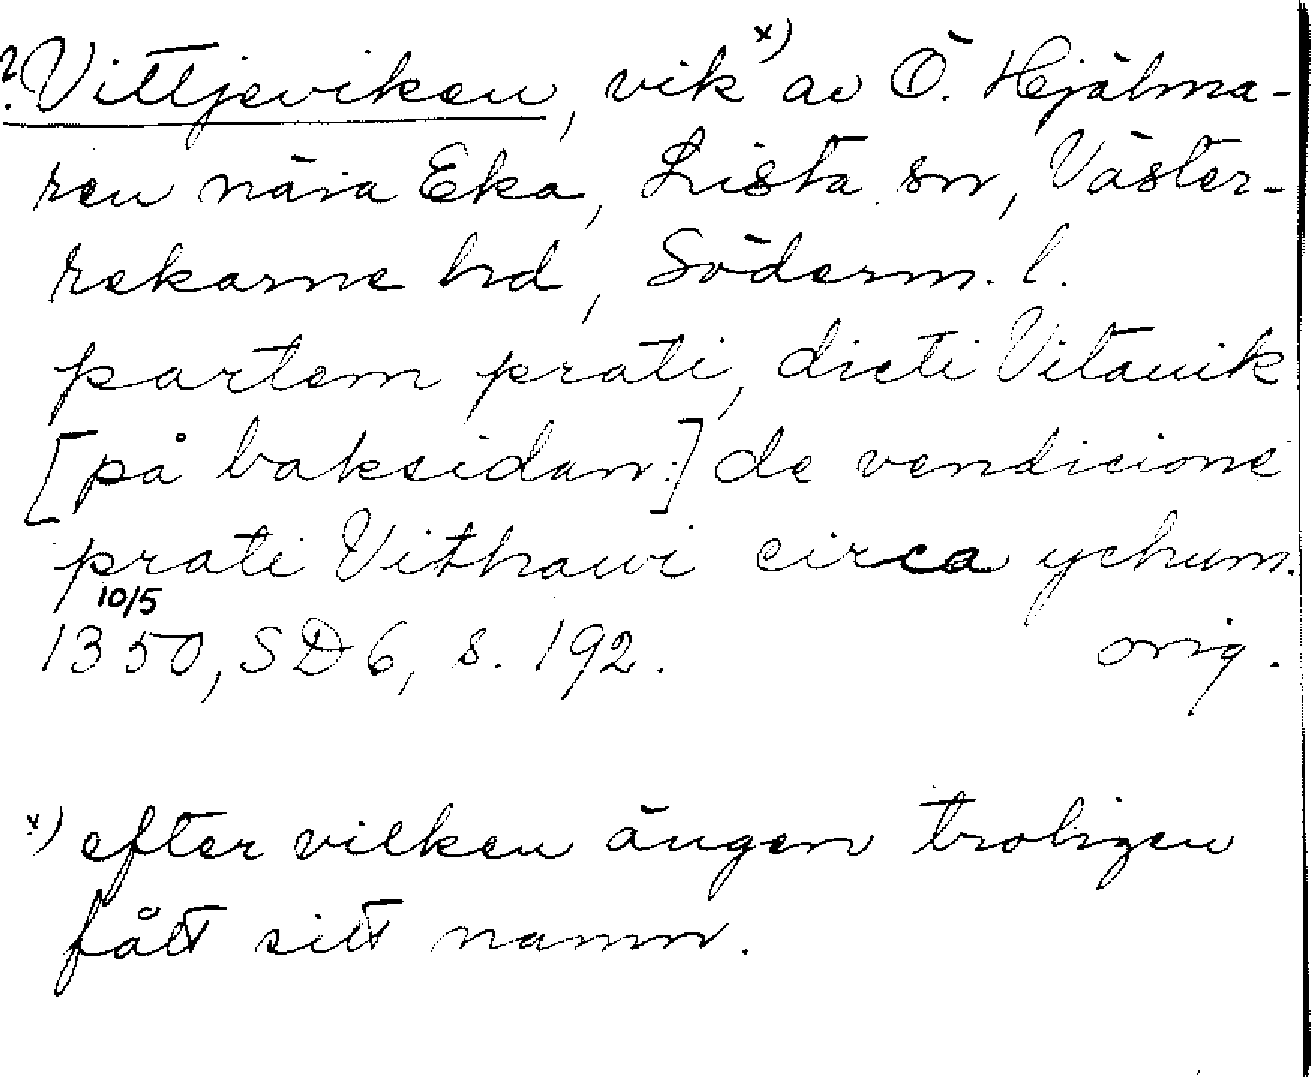 ?Vittjeviken, vik x) av Ö. Hjälma-
ren nära Eka, Lista sn, Väster-
rekarne hd, Söderm. l.
partem prati, dicti Vitauik
[på baksidan:] de vendicione
prati Vithawi circa ychum.
10/5
1350, SD 6, s. 192. orig.
x) efter vilken ängen troligen
fått sitt namn.